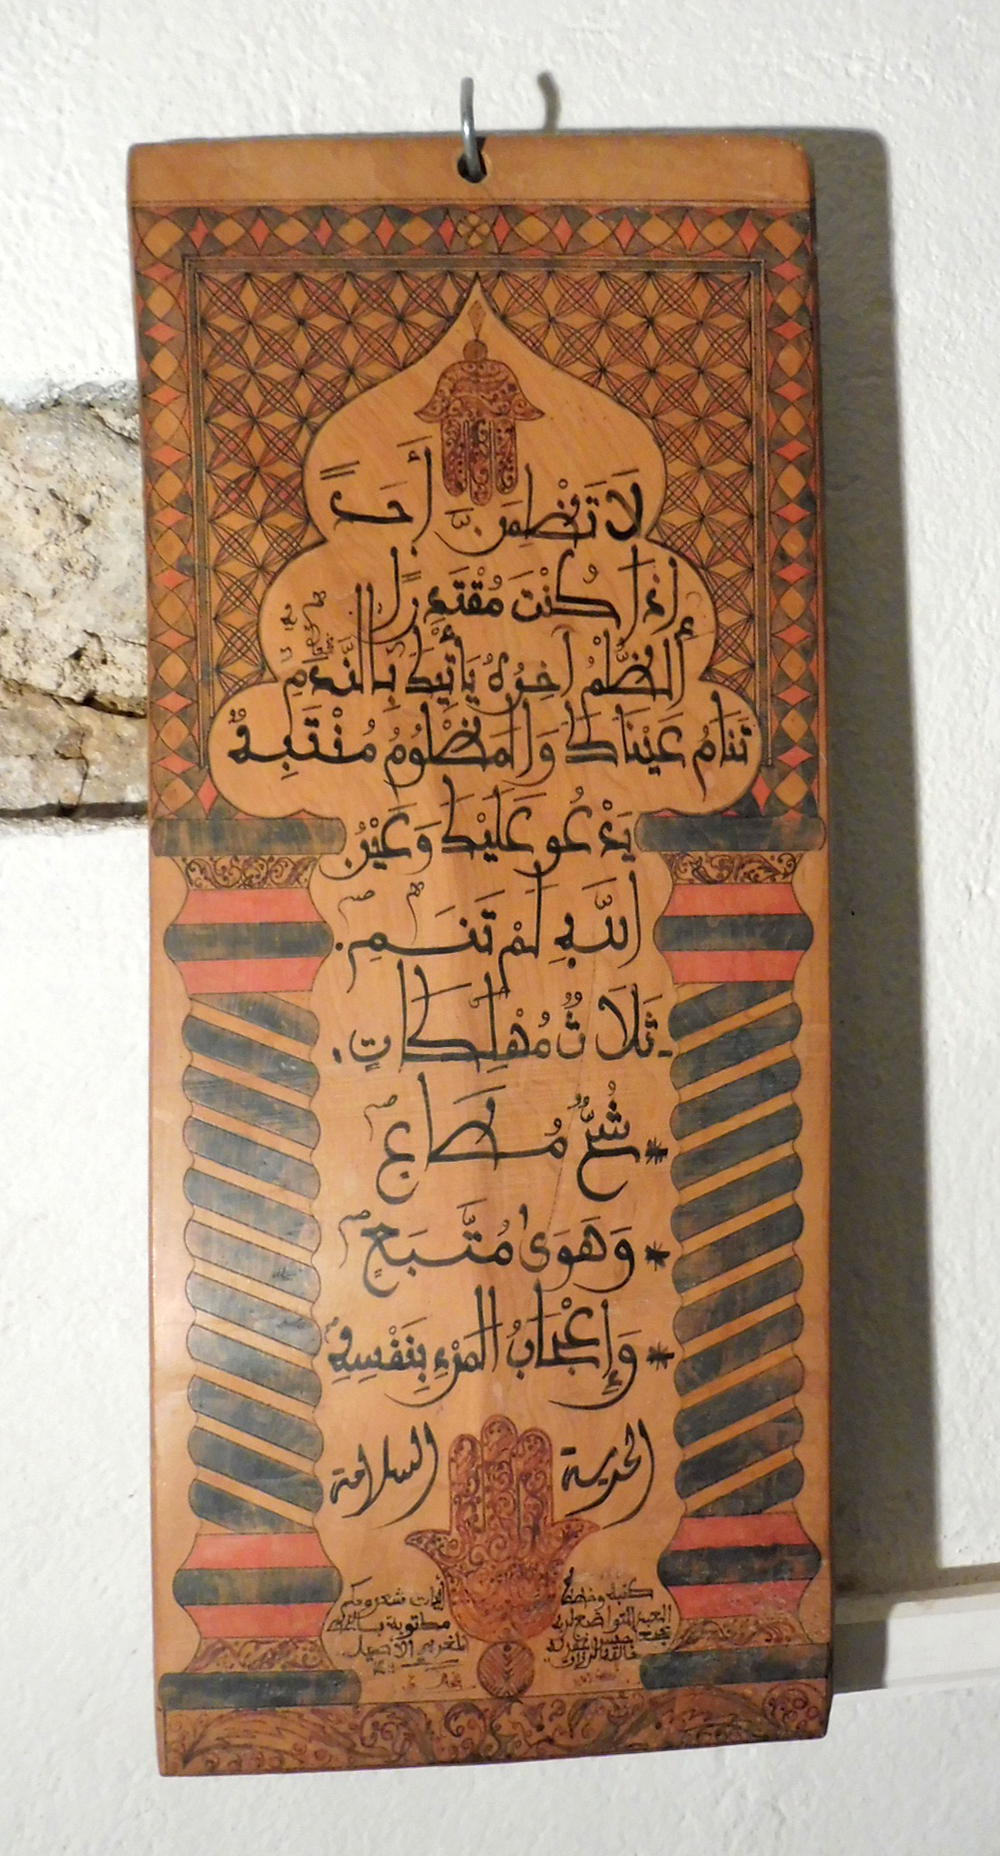 لَا تَظْلِمَنَّ أَحَداً
إِذَا كُنْتَ مُقْتَدِراً
أَلظُّلْمُ اخِرُهُ يَأْتِيكَ بِالنَّدَمِ
تَنَامُ عَيْنَاكَ وَالمَظْلُومُ مُنْتَبِهٌ
يَدْعُو عَلَيْكَ وَعَيْنُ
اللَّهِ لَمْ تَنَمِ.
ثَلَاثٌ مُهْلِكَاتٍ.
* شُحٌّ مُطَاعٍ
* وَهَوَى مُتَّبَعٍ
* وَإِعْجَابُ المَرْءِ بِنَفْسِهِ
الحرية السلامة
كتبه وخططه
العبد المتواضع لربه
أبيات شعر وحكم
مكتوبة بالخط
المغربي الأصيل